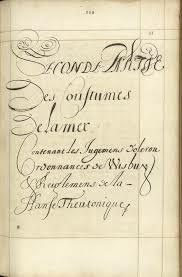 SECONDE PARTIE
Des Coustumes
De la mer
Contenant les Jugemens d'oleron
Ordonnances de Wisbuy
& Reiglemens de la
Hanse Theutonique